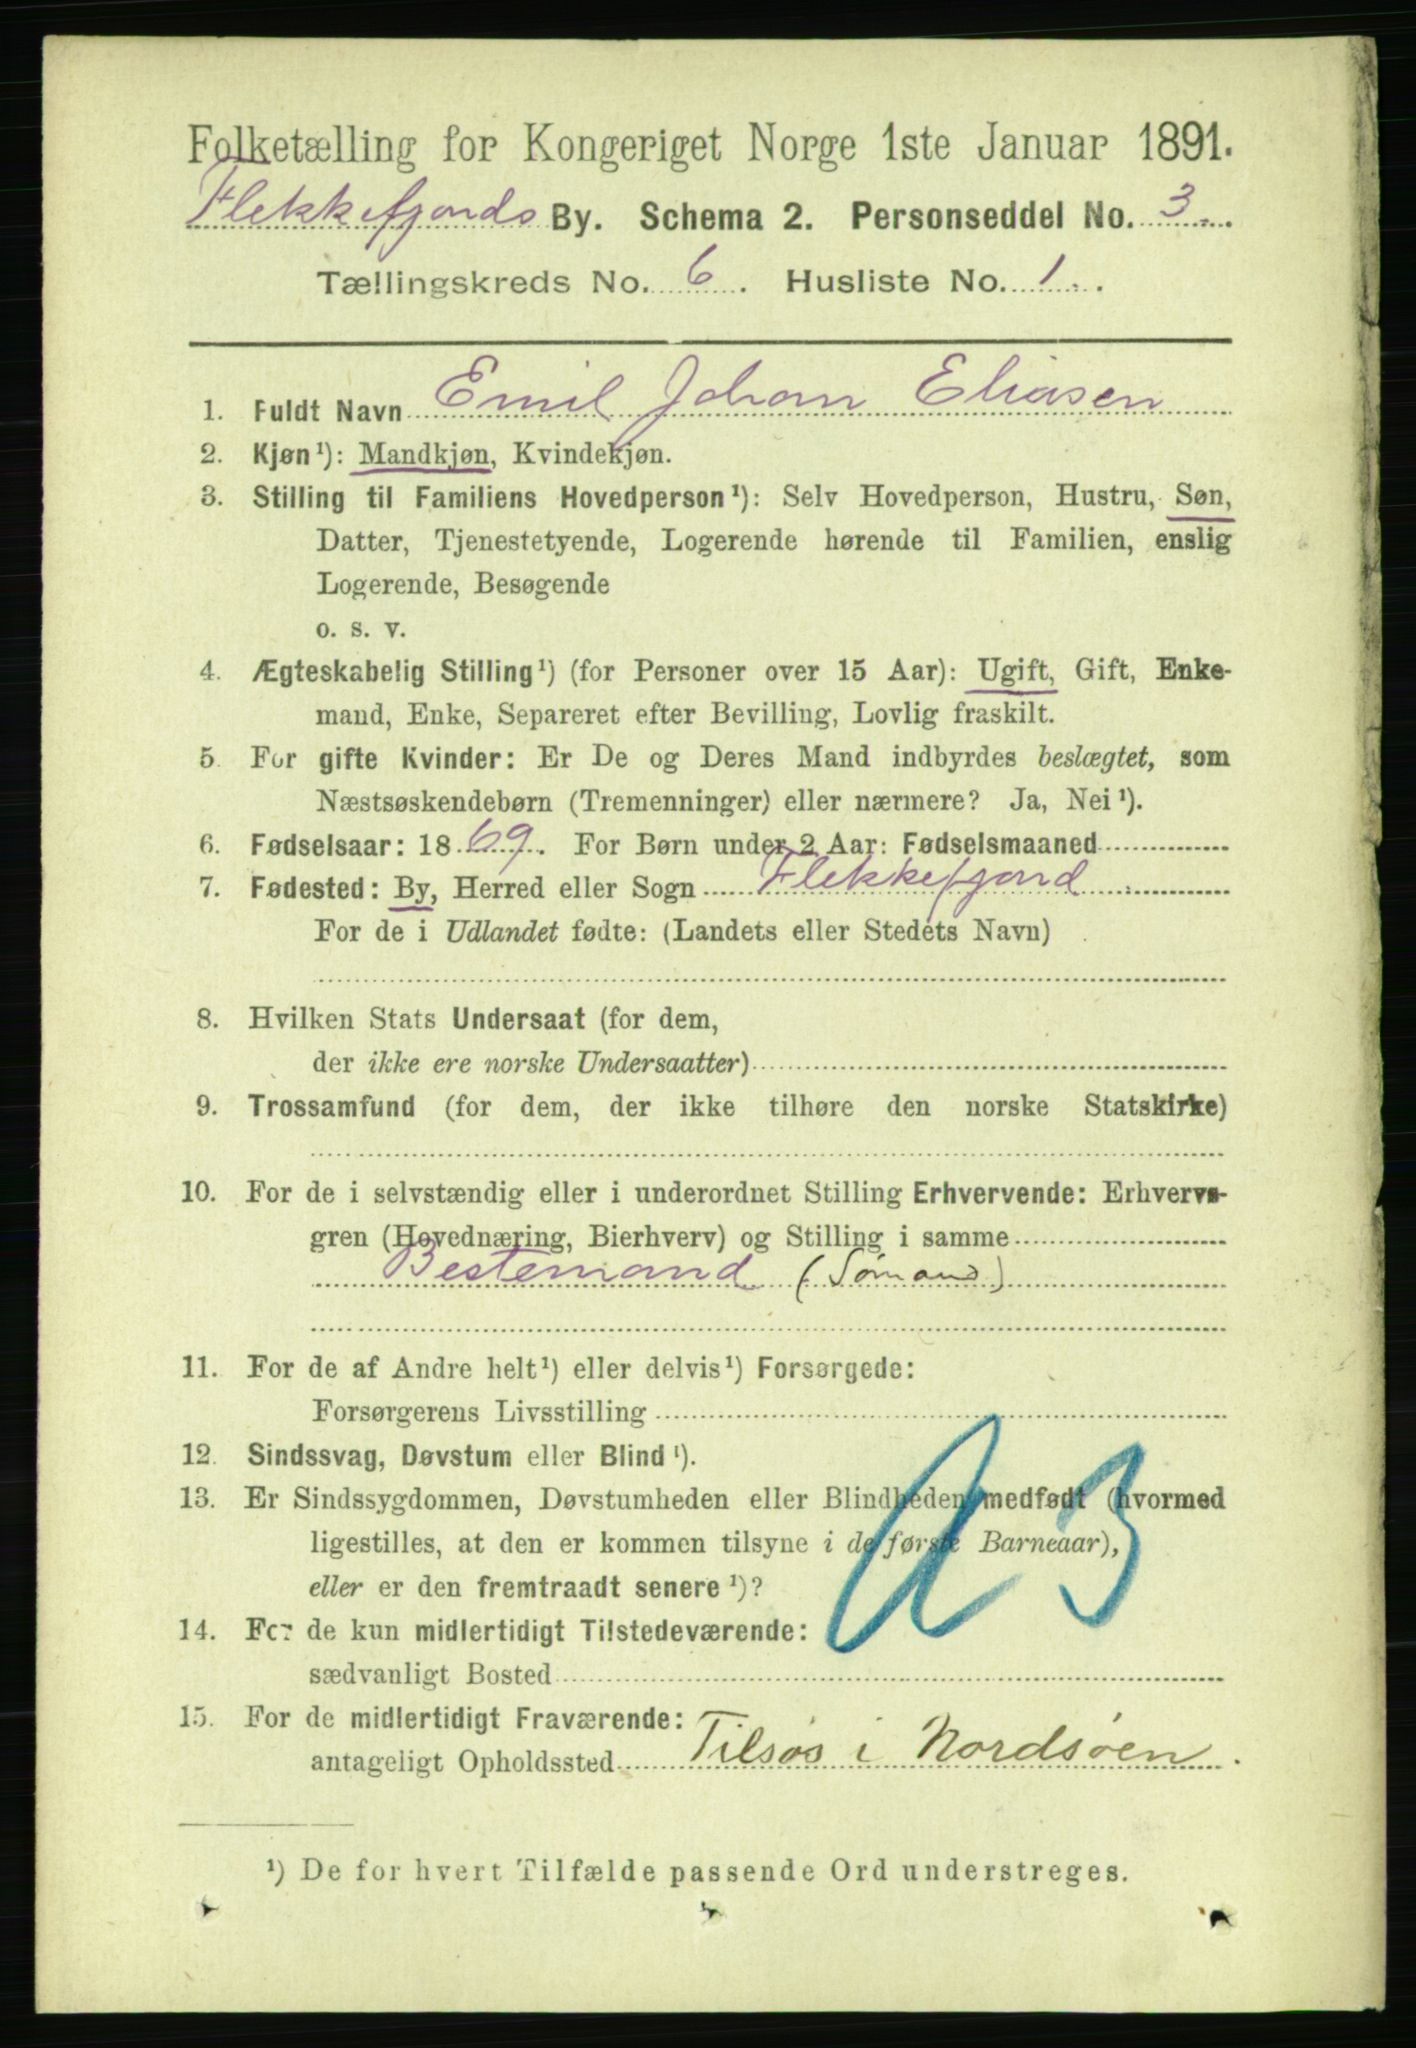 Folketælling for Kongeriget Norge 1ste Januar 1891.
Flekkefjords By. Schema 2. Personseddel No. 3.
Tællingskreds No. 6. Husliste No. 1.
1. Fuldt Navn Emil Johan Eliasen
2. Kjøn¹): Mandkjøn, Kvindekjøn.
3. Stilling til Familiens Hovedperson¹): Selv Hovedperson, Hustru, Søn,
Datter, Tjenestetyende, Logerende hørende til Familien, enslig
Logerende, Besøgende
o. s. v.
4. Ægteskabelig Stilling¹) (for Personer over 15 Aar): Ugift, Gift, Enke-
mand, Enke, Separeret efter Bevilling, Lovlig fraskilt.
5. For gifte Kvinder: Er De og Deres Mand indbyrdes beslægtet, som
Næstsøskendebørn (Tremenninger) eller nærmere? Ja, Nei¹).
6. Fødselsaar: 1869. For Børn under 2 Aar: Fødselsmaaned
7. Fødested: By, Herred eller Sogn Flekkefjord
For de i Udlandet fødte: (Landets eller Stedets Navn)
8. Hvilken Stats Undersaat (for dem,
der ikke ere norske Undersaatter)
9. Trossamfund (for dem, der ikke tilhøre den norske Statskirke)
10. For de i selvstændig eller i underordnet Stilling Erhvervende: Erhvervs-
gren (Hovednæring, Bierhverv) og Stilling i samme
Bestemand (Sømand)
11. For de af Andre helt¹) eller delvis¹) Forsørgede:
Forsørgerens Livsstilling
12. Sindssvag, Døvstum eller Blind¹).
13. Er Sindssygdommen, Døvstumheden eller Blindheden medfødt (hvormed
ligestilles, at den er kommen tilsyne i de første Barneaar),
eller er den fremtraadt senere¹)?
14. For de kun midlertidigt Tilstedeværende:
sædvanligt Bosted
15. For de midlertidigt Fraværende:
antageligt Opholdssted Tilsøs i Nordsøen.
¹) De for hvert Tilfælde passende Ord understreges.